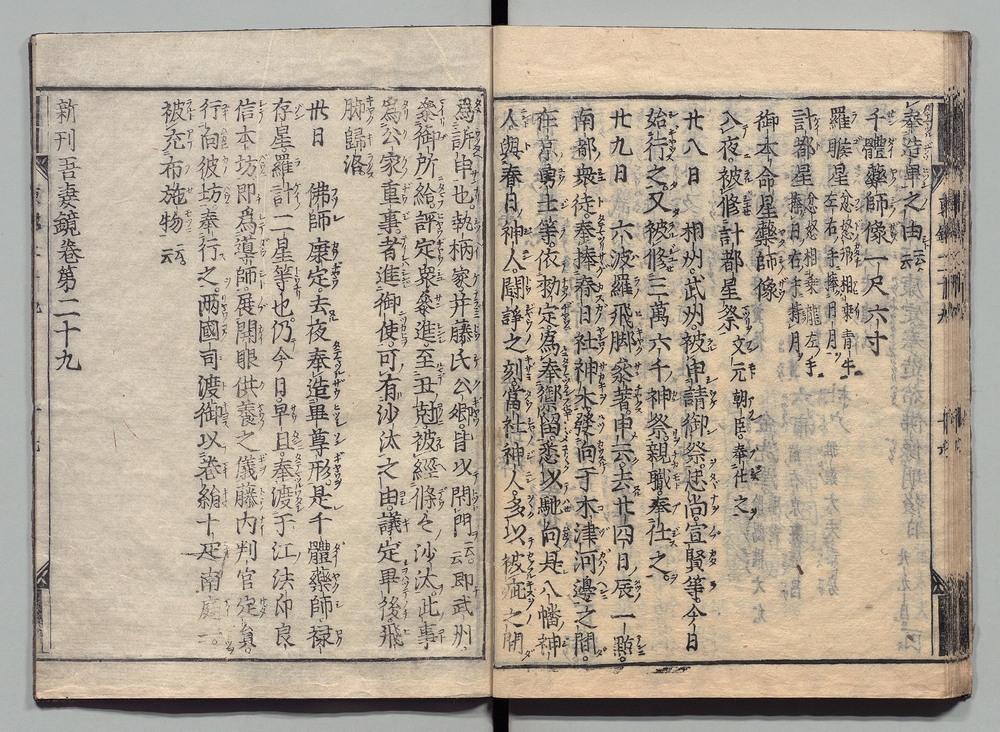 奉造畢之由云云
千體藥師像一尺六寸
羅睺星忿怒形相乘青牛左右ノ手捧日月
計都星忿怒相乘龍左ノ手捧日右ノ手持月
御本命星藥師像
入夜被修計都星祭文元朝臣奉仕之
廿八日 相州武州被申請御祭起尚宣賢等今日
始行之又被修三萬六千神祭親職奉仕之
廿九日 六波羅飛脚參著申云去廿四日辰一點
南都衆徒奉捧春日社神木發向于木津河邊之間
在京勇士等依勅定爲奉禦留悉以馳向是八幡神
人與春日神人鬪諍之刻當社神人多以被疵之間
爲訴申也執柄家并藤氏公卿皆以閇門云云即武州
參御所給評定衆參進至丑尅被經條々沙汰此事
爲公家重事者進御使可有沙汰之由議定畢後飛
脚歸洛
卅日 佛師康定去夜奉造畢尊形是千體藥師祿
存星羅計二星等也仍今日早旦奉渡于江法印良
信本坊即爲導師展開眼供養之儀藤内判官定員
行向彼坊奉行之兩國司渡御以卷絹十疋南庭一
被充布施物云云
新刊吾妻鏡卷第二十九